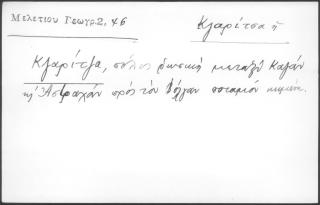 Μελετίου Γεωγρ. 2, 46
Κζαρίτσα ἡ
Κζαρίτζα, πόλις ῥωσικὴ μεταξὺ Καζάν
κ' Ἀστραχάν πρὸς τὸν Βόλγαν ποταμόν κειμένη.